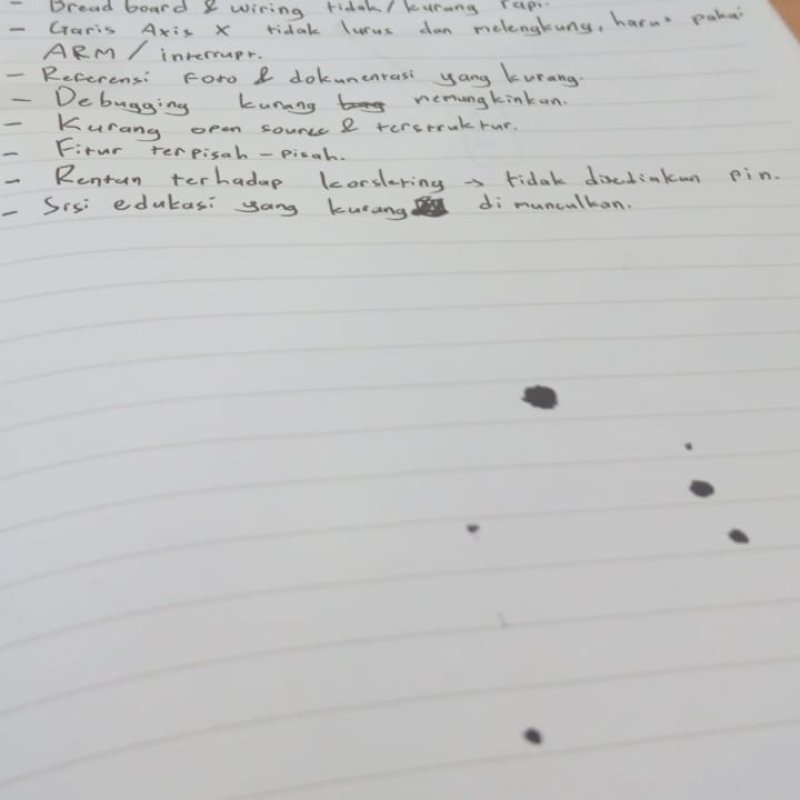 - Bread board & wiring tidak/kurang rapi.
- Garis Axis X tidak lurus dan melengkung, harus pakai
ARM / interrupt.
- Referensi Foto & dokumentasi yang kurang.
- Debugging kurang memungkinkan.
- Kurang open source & terstruktur.
- Fitur terpisah-pisah.
- Rentan terhadap korslering → tidak disediakan pin.
- Sisi edukasi yang kurang dimunculkan.